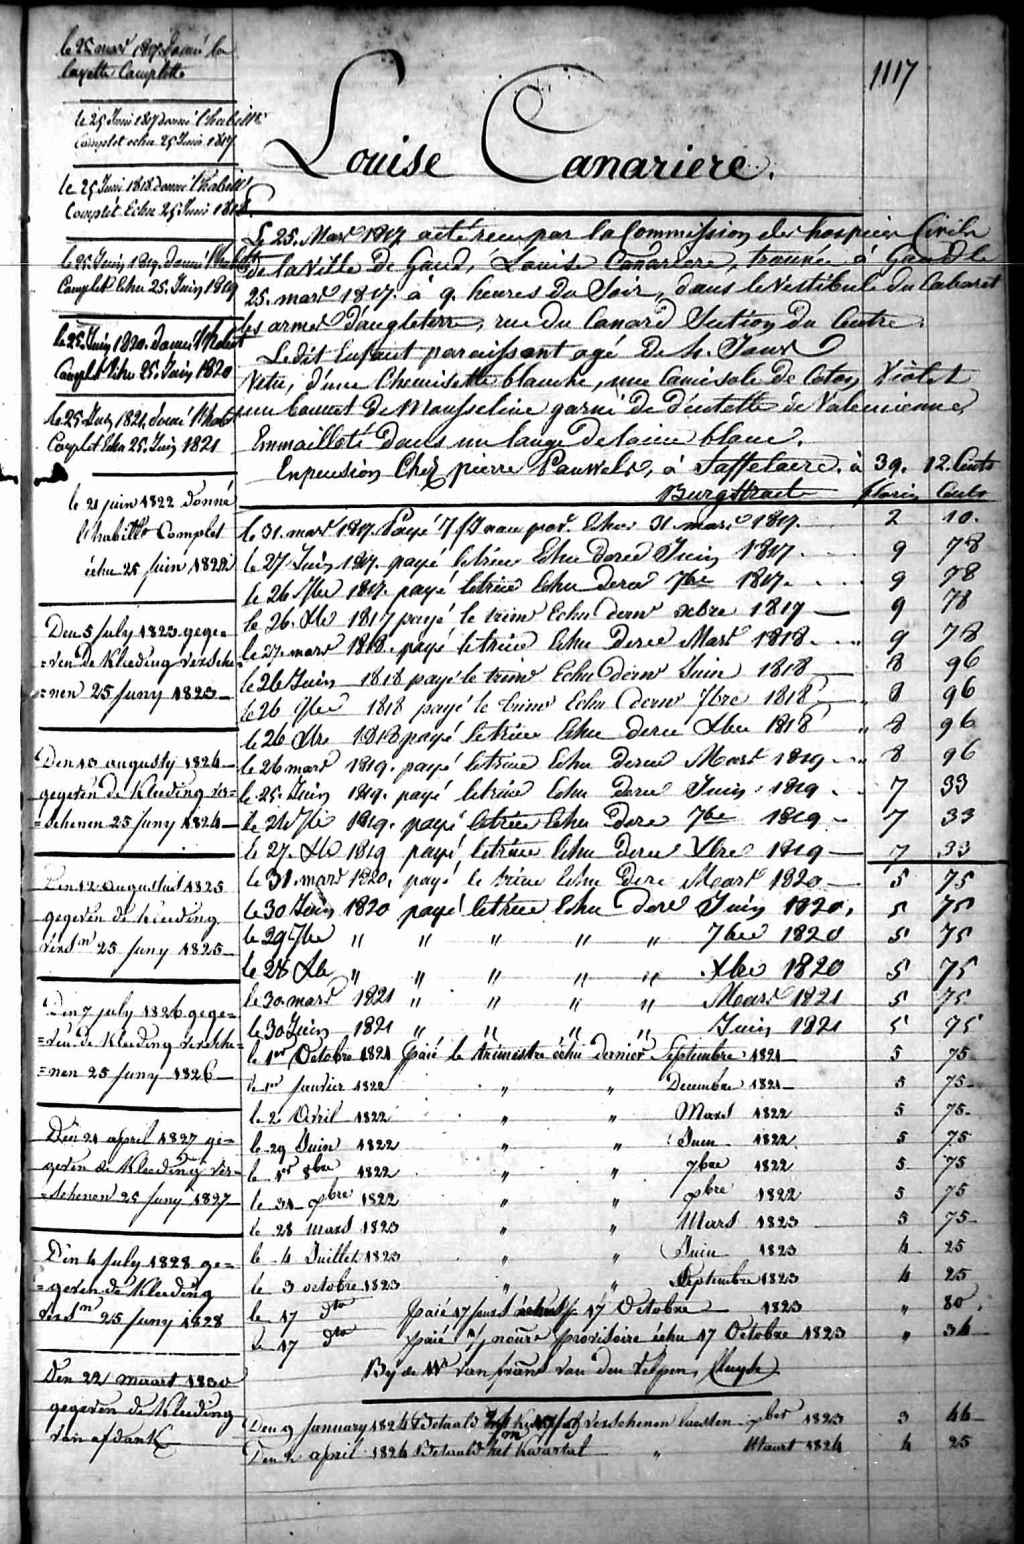 1117
Louise Canariere.
le 25 mars 1817. donné la
layette Complette
le 25 Juin 1817 donné l'habillt
Complet echu 25 Juin 1817.
le 25 Juin 1818 donné l'habillt
Complet Echu 25 Juin 1818.
le 25 Juin 1819. donné l'habillt
Complet Echu 25. Juin 1819
le 25. Juin 1820. donné l'habit
Complet Echu 25. Juin 1820
le 25 Juin 1821. donné l'habt
Complet Echu 25. Juin 1821
le 21 juin 1822 donné
l'habillt Complet
échu 25 juin 1822
Den 5 July 1823 gege=
=ven de Kleeding verschee=
=nen 25 Juny 1823
Den 13 augusty 1824
gegeven de Kleeding ver=
=schenen 25 Juny 1824
Den 12 augustus 1825
gegeven de Kleeding
versn 25 Juny 1825
Den 7 july 1826 gege=
=ven de Kleeding versche=
=nen 25 Juny 1826
Den 21 april 1827 ge=
geven de Kleeding ver=
=schenen 25 Juny 1827
Den 4 July 1828 ge=
=geven de Kleeding
versn 25 Juny 1828
Den 22 maart 1830
gegeven de Kleeding
van afdank
Le 25. Mars 1817 acté reçu par la Commission des hospices Civils
de la Ville de Gand, Louise Canariere, trouvée à Gand le
25. mars 1817. à 9. heures du Soir, dans le Vestibule du Cabaret
les armes d'angleterre, rue du Canard Section du Centre.
Ledit Enfant paraissant agé de 4. Jours
Vetu, d'une Chemisette blanche, une Camisole de Coton Violet
un bonnet de Mousseline garni de dentelle de Valenciennes
Emmailloté dans un lange de laine blanc.
En pension Chez pierre Pauwels, à Saffelaere. à 39. 12. Cents
Burgstraete florins Cents
le 31. mars 1817. Payé 7 Jrs Echus 31. mars 1817. 2 10.
le 27. Juin 1817. payé letrim Echu dernr Juin 1817. 9 78
le 26 7bre 1817. payé letrim Echu dernr 7bre 1817. 9 78
le 26. Xbre 1817 payé le trimr Echu dernr xbre 1817 9 78
le 27. mars 1818. payé letrim Echu dernr Mars 1818. 9 78
le 26 Juin 1818 payé le trimr Echu dernr Juin 1818 8 96
le 26 7bre 1818 payé le trimr Echu dernr 7bre 1818 8 96
le 26 Xbre 1818 payé letrim Echu dernr Xbre 1818 8 96
le 26 mars 1819. payé letrim Echu dernr Mars 1819 8 96
le 25. Juin 1819. payé letrim Echu dernr Juin 1819 7 33
le 24 7bre 1819. payé letrim Echu dernr 7bre 1819 7 33
le 27. Xbre 1819 payé letrim Echu dernr Xbre 1819 7 33
le 31. mars 1820. payé le trim Echu dernr Mars 1820 5 75
le 30 Juin 1820 payé letrim Echu dernr Juin 1820. 5 75
le 29 7bre " " " " " 7bre 1820 5 75
le 28 Xbre " " " " " Xbre 1820 5 75
le 30 mars 1821 " " " " Mars 1821 5 75
le 30 Juin 1821 " " " " Juin 1821 5 75
le 1er Octobre 1821 payé le trimestre échu dernier Septembre 1821 5 75
le 1er Janvier 1822 " " Decembre 1821 5 75
le 2 Avril 1822 " " Mars 1822 5 75
le 29 Juin 1822 " " Juin 1822 5 75
le 1er 8bre 1822 " " 7bre 1822 5 75
le 31 xbre 1822 " " xbre 1822 5 75
le 28 mars 1823 " " Mars 1823 5 75
le 4 Juillet 1823 " " Juin 1823 4 25
le 3 octobre 1823 " " Septembre 1823 4 25
le 17 dto paié 17 jours 17 Octobre 1823 " 80
le 17 dto paié nourr provisoire échu 17 Octobre 1823 " 34
By de We van frans van den Velpen,
Den 9 January 1824 Betaald verschenen laesten xber 1823 3 44
Den 2 april 1824 Betaald het kwartal " Maart 1824 4 25